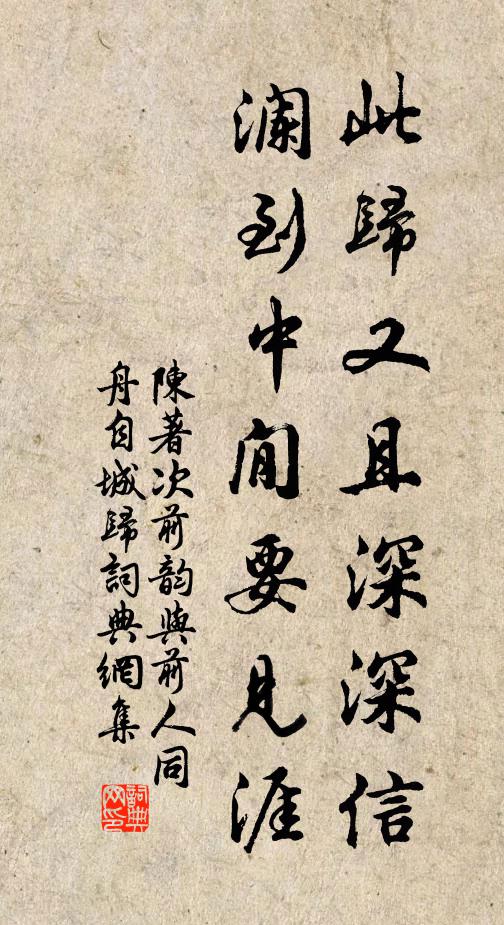 此歸又且深深信
瀾到中間要見涯
陳著次前韵與前人同
舟自城歸詞典網集
詞典
网印